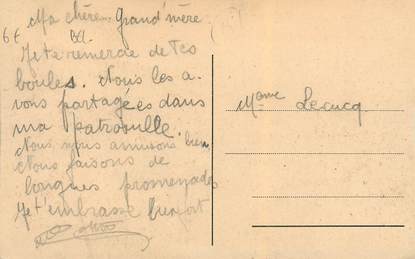 6€
Ma chère Grand'mère
Je te remercie de tes
boules. Nous les a-
vons partagées dans
ma patrouille.
Nous nous amusons bien
Nous faisons de
longues promenades
Je t'embrasse bien fort
Mme Lecucq